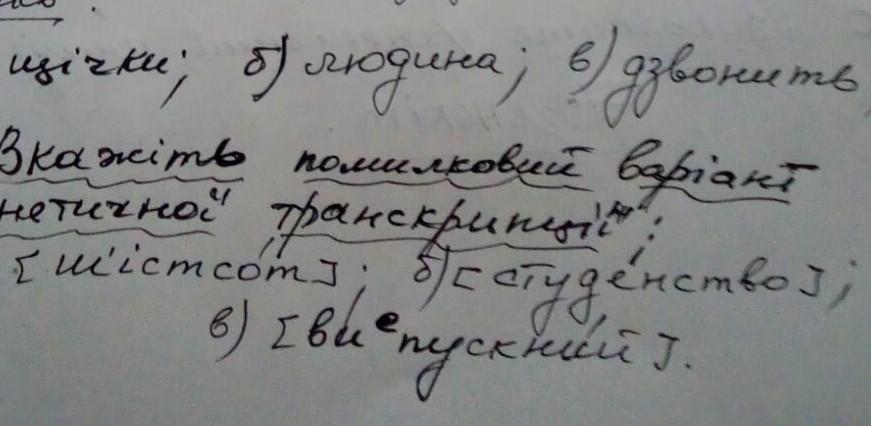 щічки; б) людина; в) дзвонить
Вкажіть помилковий варіант
нетичної транскрипції:
[ш'істсо́т]; б) [студе́нство];
в) [виᵉпускни́й].